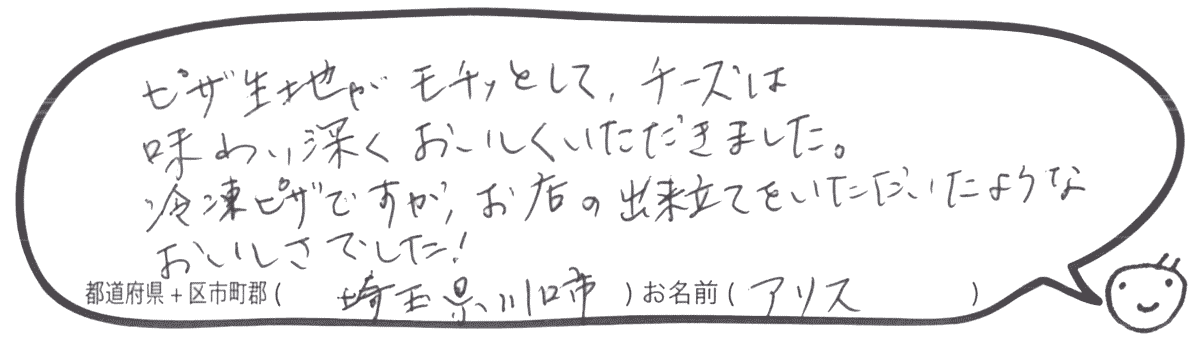 ピザ生地がモチッとして、チーズは
味わい深くおいしくいただきました。
冷凍ピザですが、お店の出来立てをいただいたような
おいしさでした!
都道府県+区市町郡( 埼玉県川口市 )お名前( アリス )